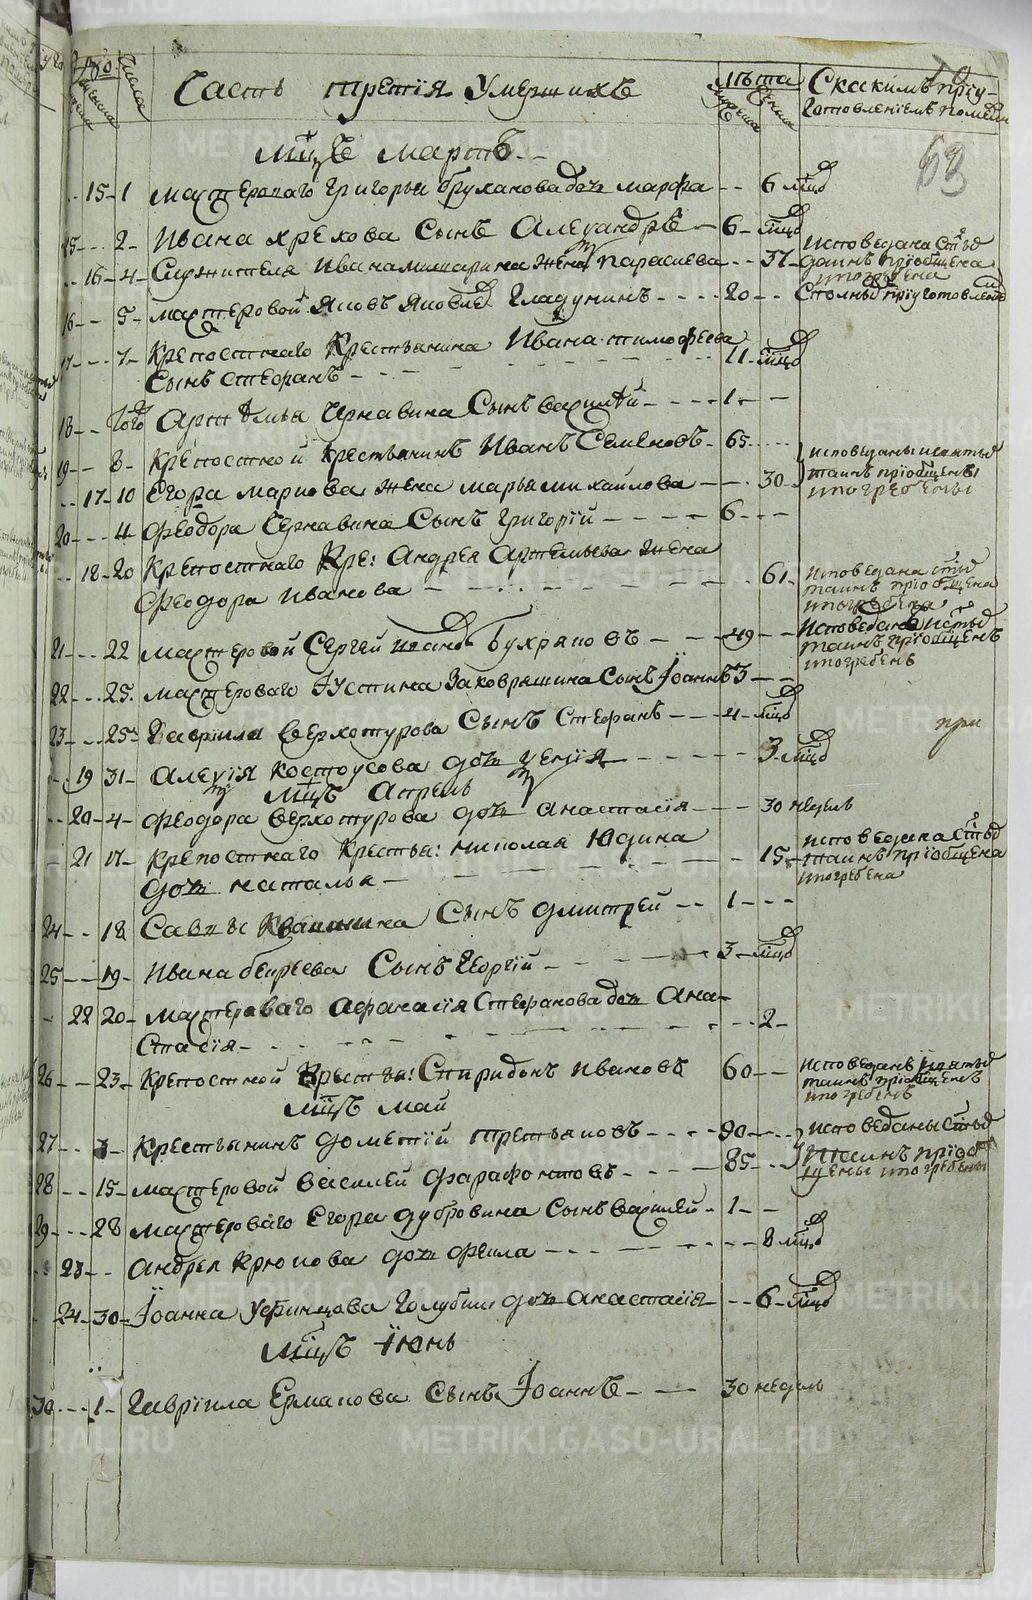 Число Числа Часть третїя Умершихъ Лѣта Мужеска Женска Съ какимъ прїу-
готовленїемъ померли
68
Мцъ Мартъ
15 1 мастероваго Григорья дочь Марфа 6 мцъ
15 2 Ивана хрехова Сынъ Алеѯандръ 6 мцъ
16 4 Служителя Ивана жена Парасковева 37 Исповедана Стыхъ таинъ прїобщена и погребена
16 5 мастеровой Яковъ Гладунинъ 20 прїуготовленїемъ
17 7 Крепостнаго Крестьянина Ивана тимофеева
Сынъ Стефанъ 11 мцъ
18 Того Чернавина Сынъ Василїй 1
19 8 Крепостной крестьянинъ Иванъ Семеновъ 65 исповеданы и святыхъ
17 10 Егора Маркова жена Марья михайлова 30 таинъ прїобщены и погребены
20 4 Феодора Чернавина Сынъ Григорїй 6
18 20 Крепостнаго Кре: Андрея Артемьева жена
Феодора Иванова 61 Исповедана стыхъ таинъ прїобщена и погребена
21 22 мастеровой Сергей Бухряковъ 49 Исповеданъ и стыхъ таинъ прїобщенъ и погребенъ
22 25 мастероваго Іустина Заковряшина Сынъ Іоаннъ 3
23 25 Гаврїила Верхотурова Сынъ Стефанъ 4 мцъ
при
19 31 Алеѯїя Костоусова дочь Ѯенїя 3 мцъ
Мцъ Апрель
20 4 Феодора Верхотурова дочь Анастасїя 30 недель
21 17 Крепостнаго Крестья: николая Юдина
дочь наталья 15 исповедана Стыхъ таинъ прїобщена и погребена
24 18 Савы Квашнина Сынъ Дмитрей 1
25 19 Ивана Сынъ Георгїй 3 мцъ
22 20 мастероваго Афанасїя Стефанова дочь Ана-
стасїя 2
26 23 Крепостной Крестья: Спиридонъ Ивановъ 60 исповеданъ и святыхъ таинъ прїобщенъ и погребенъ
Мцъ Май
27 3 Крестьянинъ Дометїй третьяковъ 90 исповеданы стыхъ
28 15 мастеровой Василей Фарафонтовъ 85 таинъ прїобщены и погребены
29 28 мастероваго Егора Дубровина Сынъ Василей 1
23 Андрея Крюкова дочь Фекла 8 мцъ
24 30 Іоанна Уфинцова дочь Анастасїя 6 мцъ
Мцъ Їюнь
30 1 Гаврїила Ермакова Сынъ Іоаннъ 30 недель
METRIKI.GASO-URAL.RU